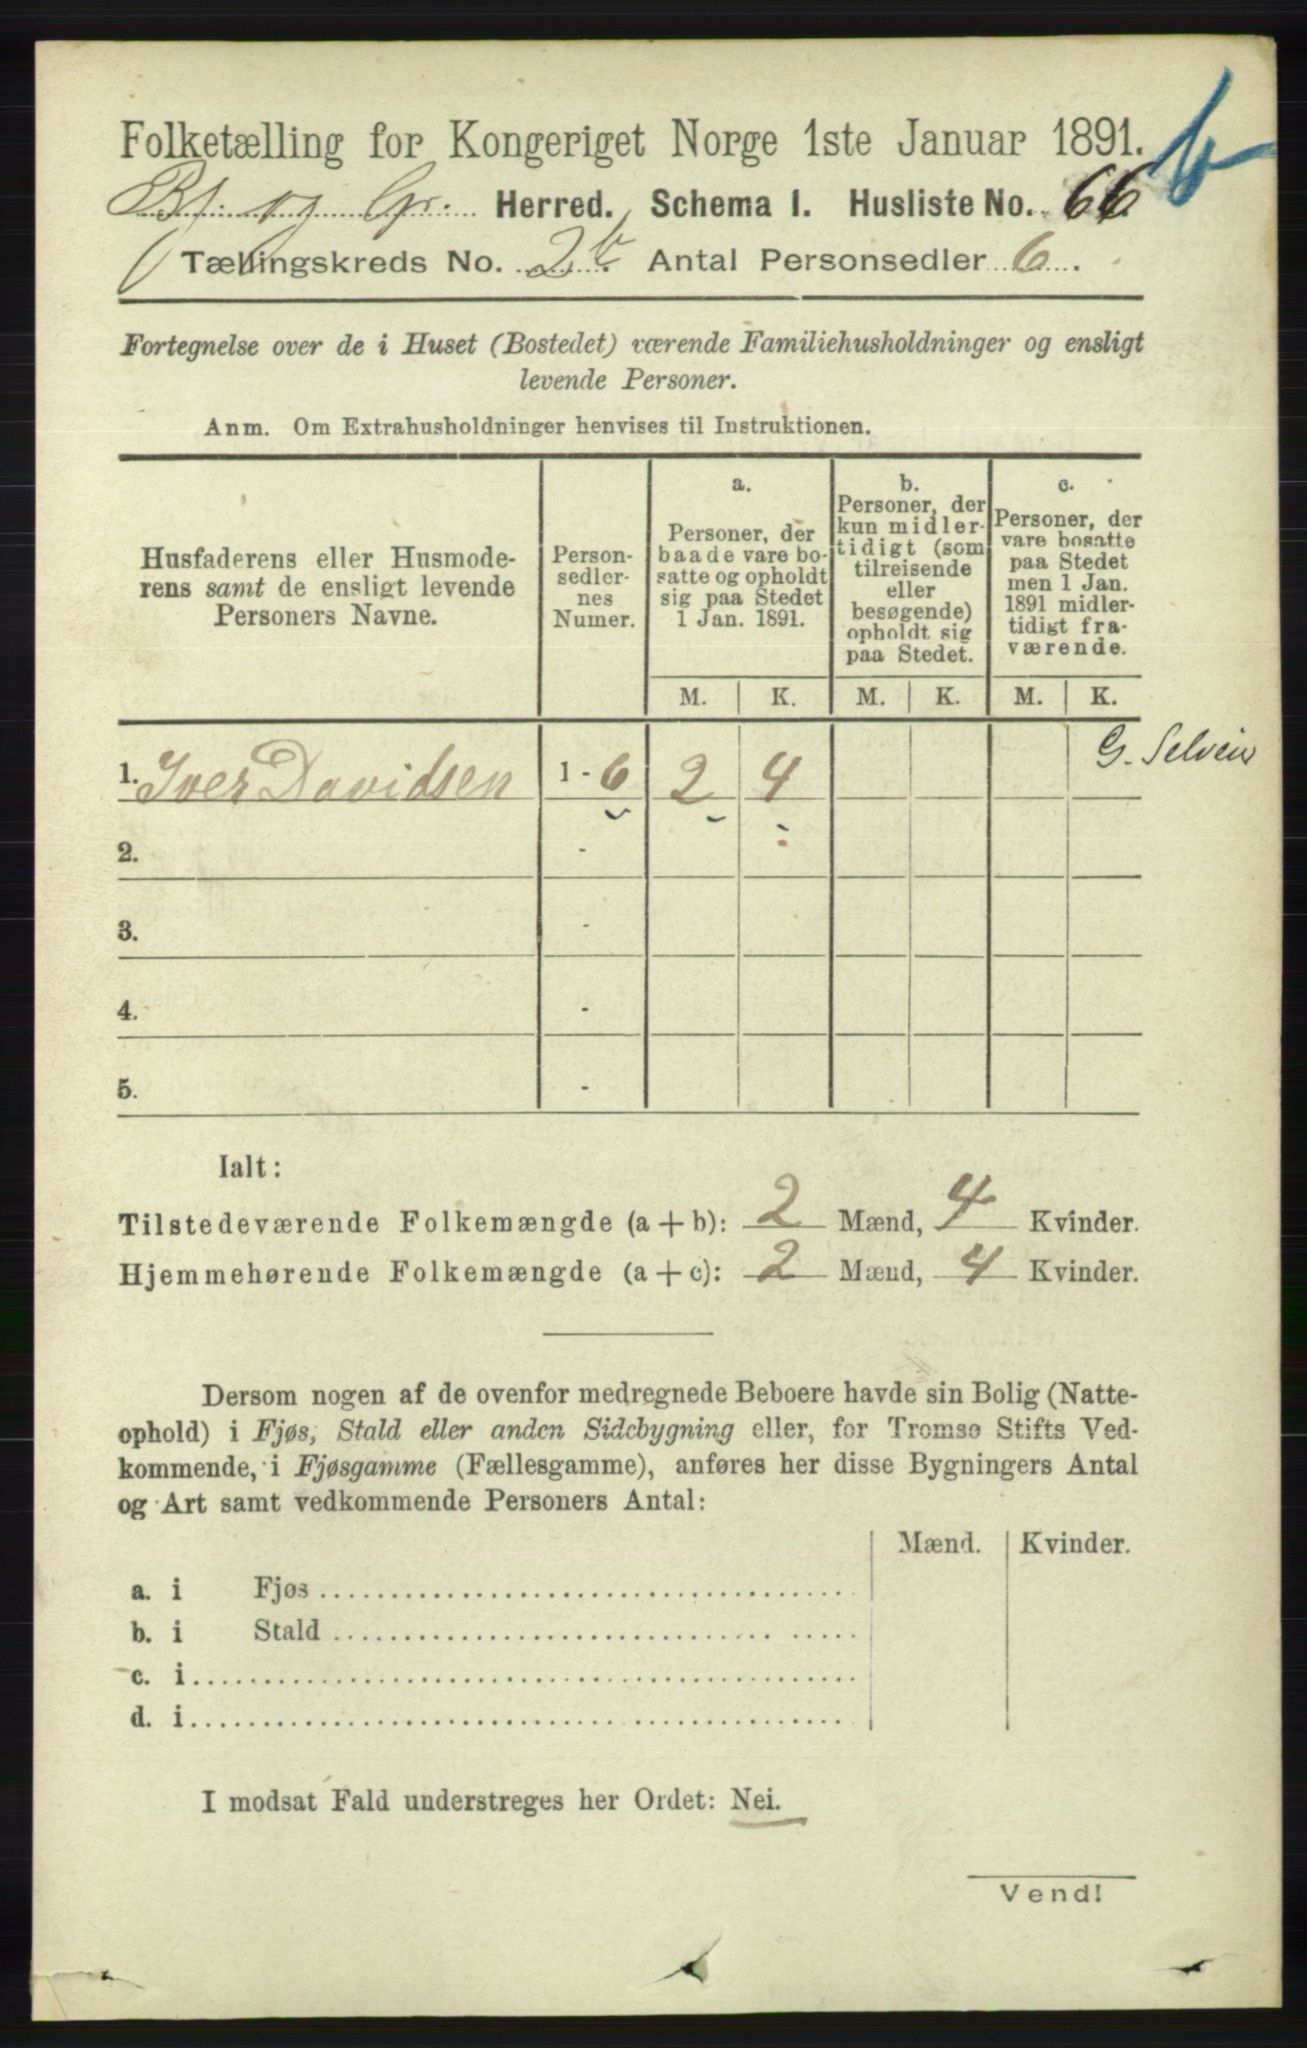 Folketælling for Kongeriget Norge 1ste Januar 1891.
b
Bj. og Gr. Herred. Schema 1. Husliste No. 66
Tællingskreds No. 2b. Antal Personsedler 6.
Fortegnelse over de i Huset (Bostedet) værende Familiehusholdninger og ensligt
levende Personer.
Anm. Om Extrahusholdninger henvises til Instruktionen.
Husfaderens eller Husmode-
rens samt de ensligt levende
Personers Navne.
Person-
sedler-
nes
Numer.
a.
Personer, der
baade vare bo-
satte og opholdt
sig paa Stedet
1 Jan. 1891.
b.
Personer, der
kun midler-
tidigt (som
tilreisende
eller
besøgende)
opholdt sig
paa Stedet.
c.
Personer, der
vare bosatte
paa Stedet
men 1 Jan.
1891 midler-
tidigt fra-
værende.
M. K. M. K. M. K.
1. Iver Davidsen 1 - 6 2 4 G.
2. -
3. -
4. -
5. -
Ialt:
Tilstedeværende Folkemængde (a + b): 2 Mænd, 4 Kvinder.
Hjemmehørende Folkemængde (a + c): 2 Mænd, 4 Kvinder.
Dersom nogen af de ovenfor medregnede Beboere havde sin Bolig (Natte-
ophold) i Fjøs, Stald eller anden Sidebygning eller, for Tromsø Stifts Ved-
kommende, i Fjøsgamme (Fællesgamme), anføres her disse Bygningers Antal
og Art samt vedkommende Personers Antal:
Mænd. Kvinder.
a. i Fjøs
b. i Stald
c. i
d. i
I modsat Fald understreges her Ordet: Nei.
Vend!